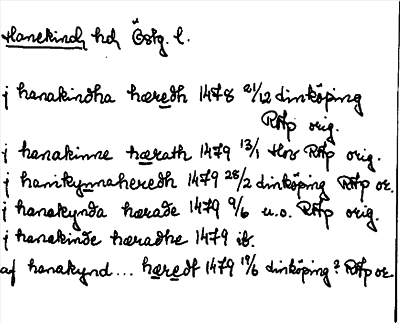 Hanekinds hd Östg. l.
j hanakindha hæredh 1478 21/12 Linköping
RAp orig.
j hanakinne hærath 1479 13/1 Hov RAp orig.
j hanikynnaheredh 1479 28/2 Linköping RAp or.
j hanakynda hærade 1479 9/6 u.o. RAp orig.
j hanakinde hæradhe 1479 ib.
af hanakynd... hæredt 1479 19/6 Linköping? RAp or.